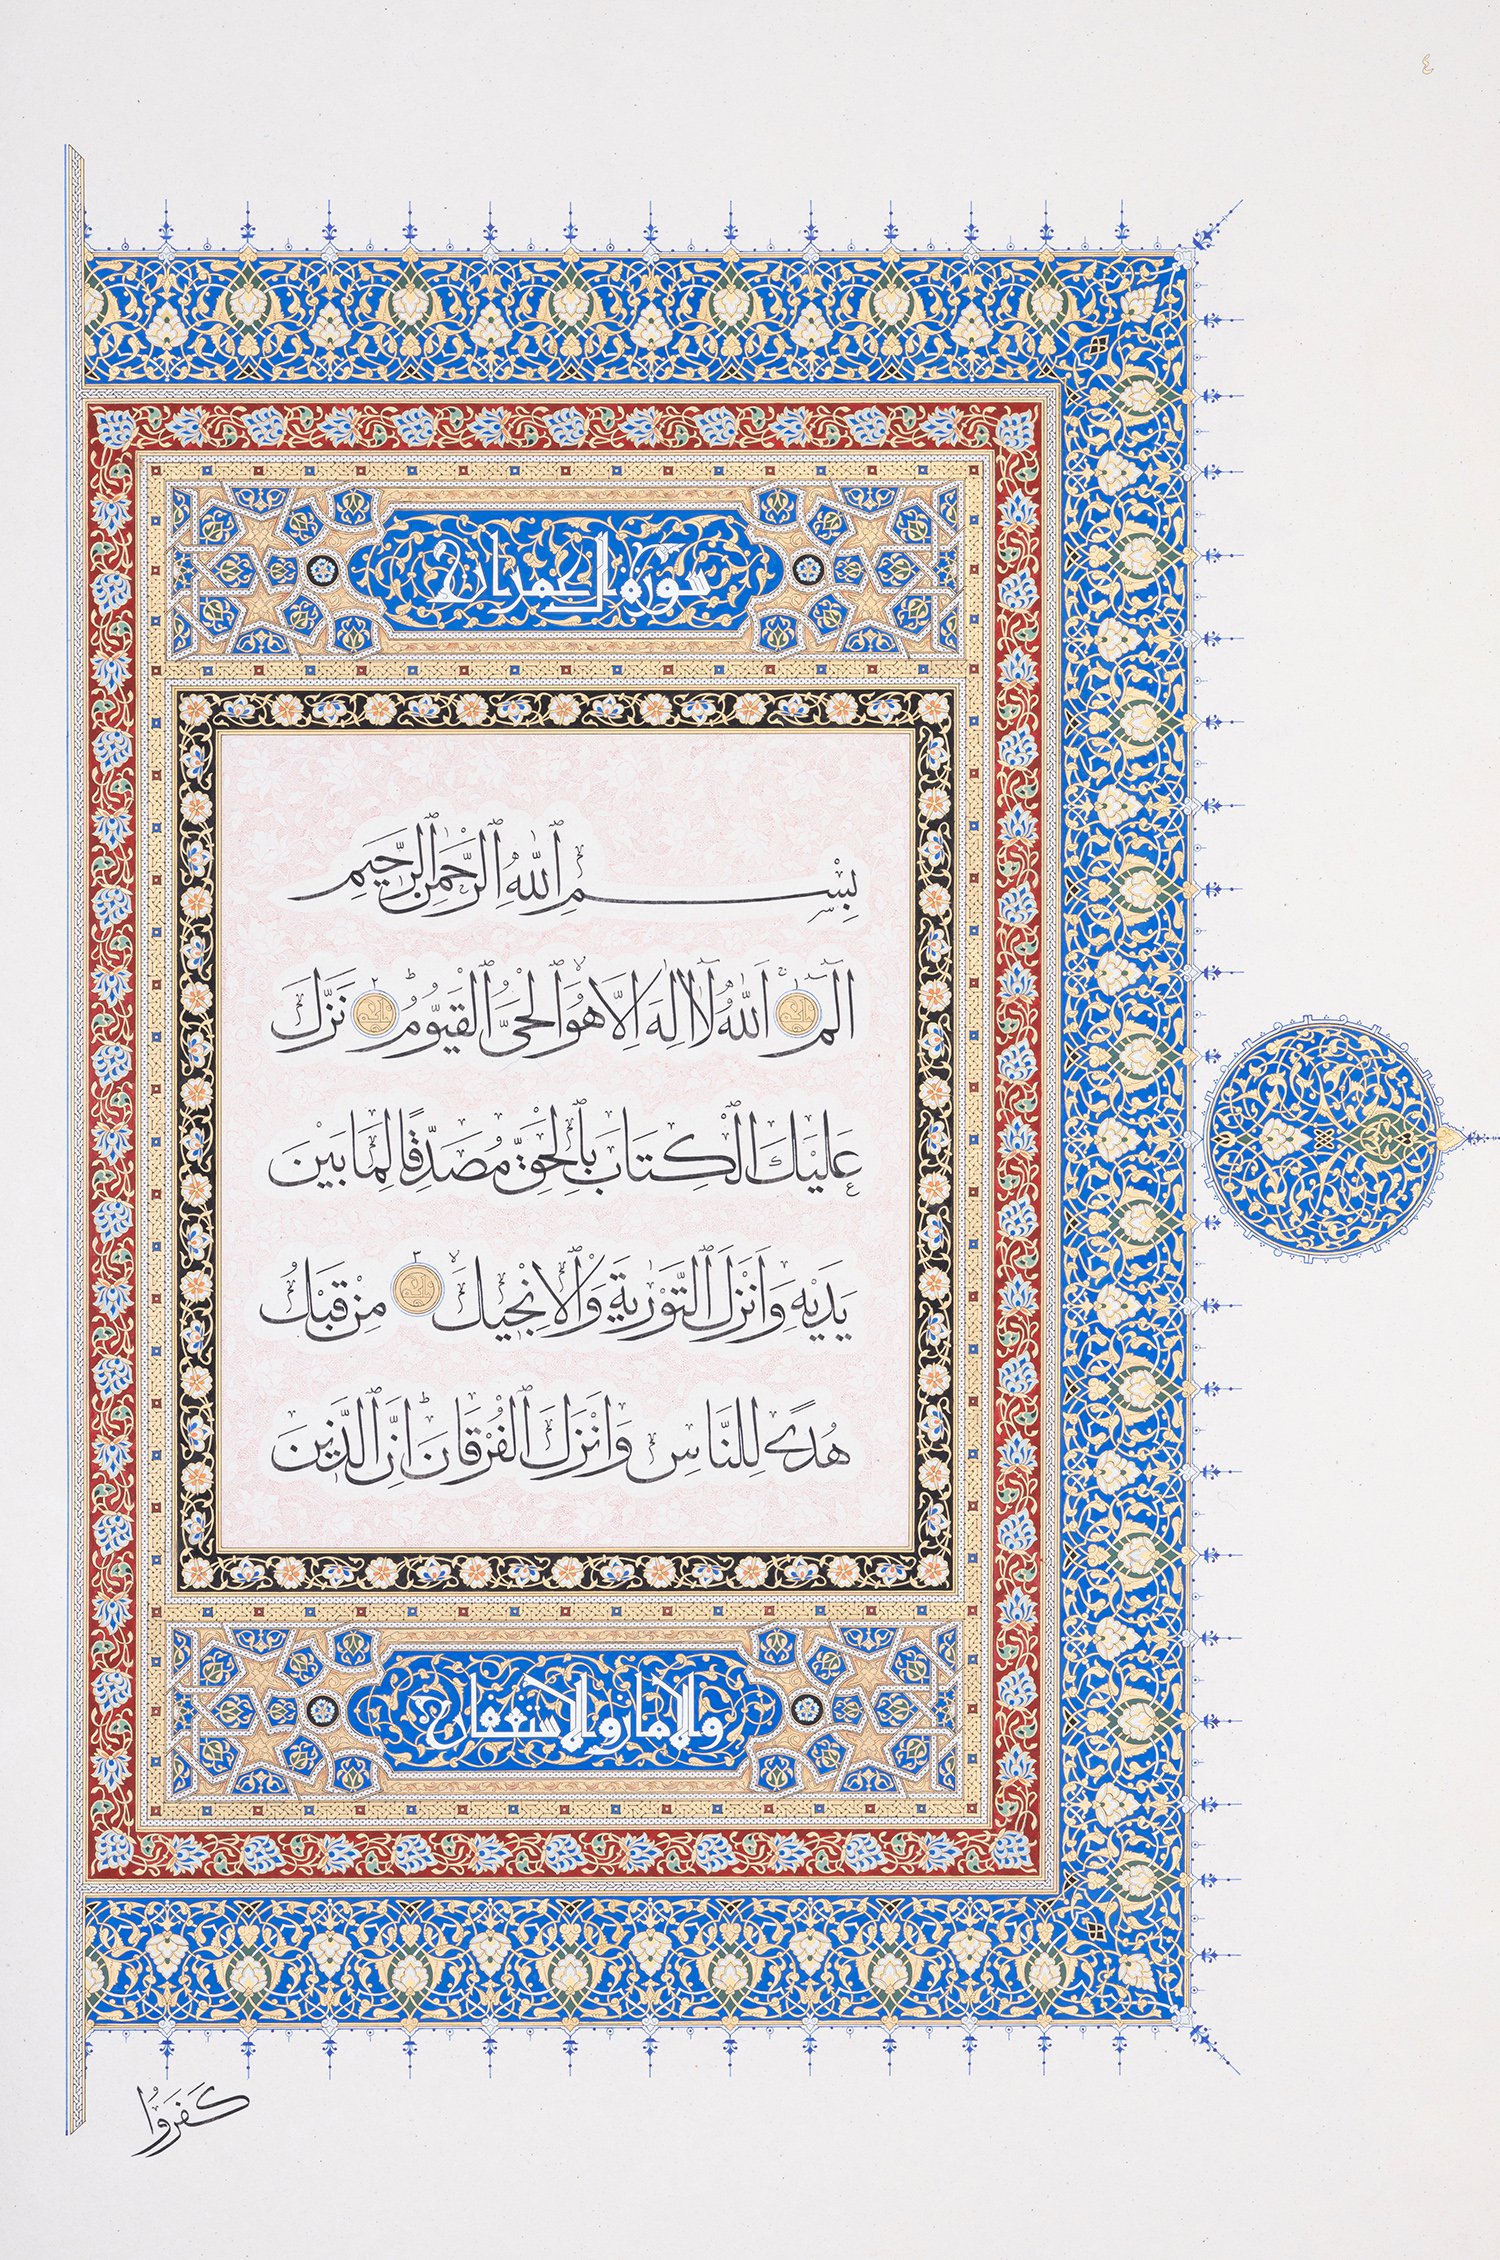 ٤
سورة ال عمران
بِسْمِ ٱللّٰهِ ٱلرَّحْمٰنِ ٱلرَّحِيمِ
الٓمٓ ١ ٱللّٰهُ لَآ اِلٰهَ اِلَّا هُوَ ٱلْحَىُّ ٱلْقَيُّومُ ٢ نَزَّلَ
عَلَيْكَ ٱلْكِتَابَ بِٱلْحَقِّ مُصَدِّقًا لِمَا بَيْنَ
يَدَيْهِ وَاَنْزَلَ ٱلتَّوْرٰيةَ وَٱلْاِنْجِيلَ ٣ مِنْ قَبْلُ
هُدًى لِلنَّاسِ وَاَنْزَلَ ٱلْفُرْقَانَ اِنَّ ٱلَّذِينَ
والامان والاستغفار
كَفَرُوا